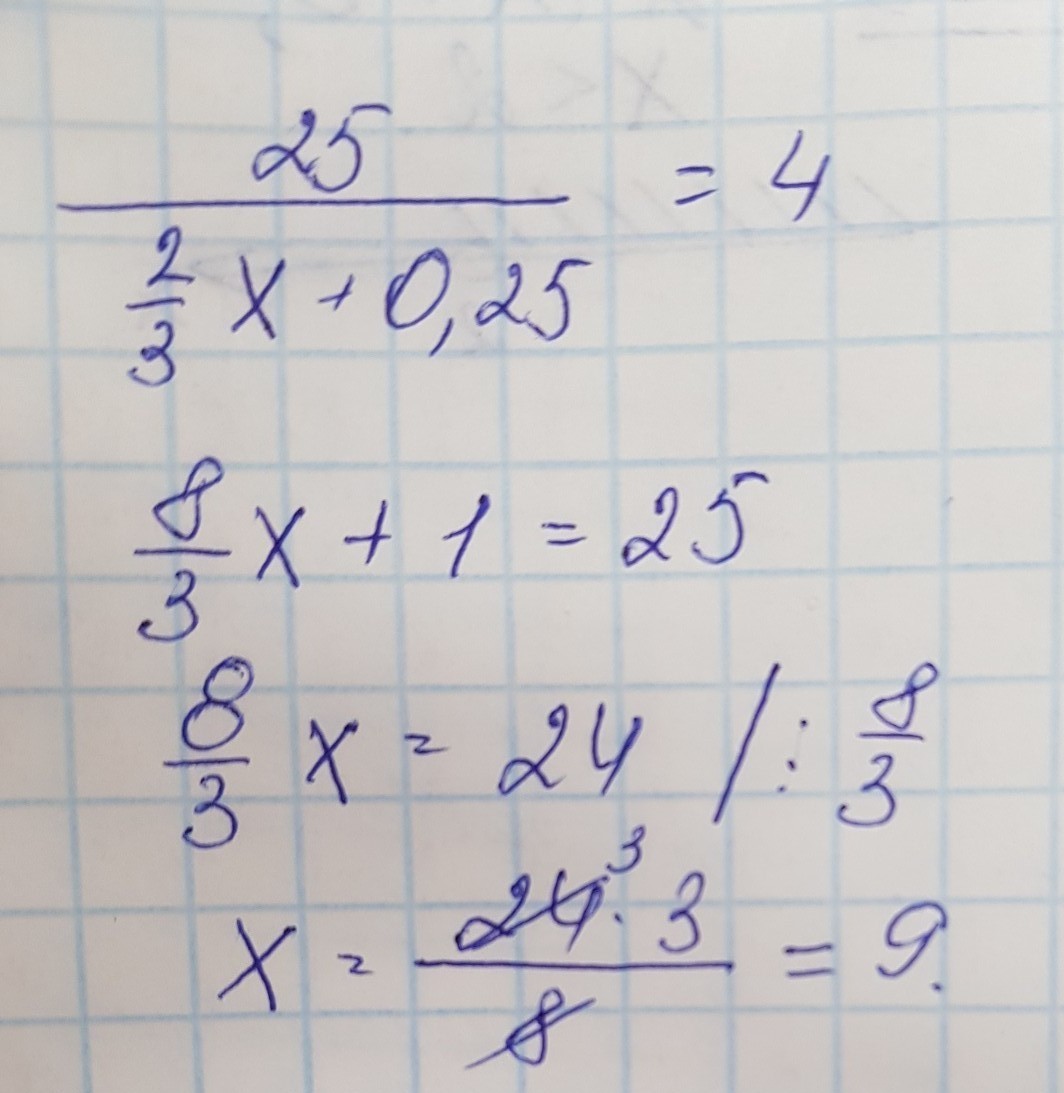 25 / (2/3 x + 0,25) = 4
8/3 x + 1 = 25
8/3 x = 24 / : 8/3
x = 24³ · 3 / 8 = 9.